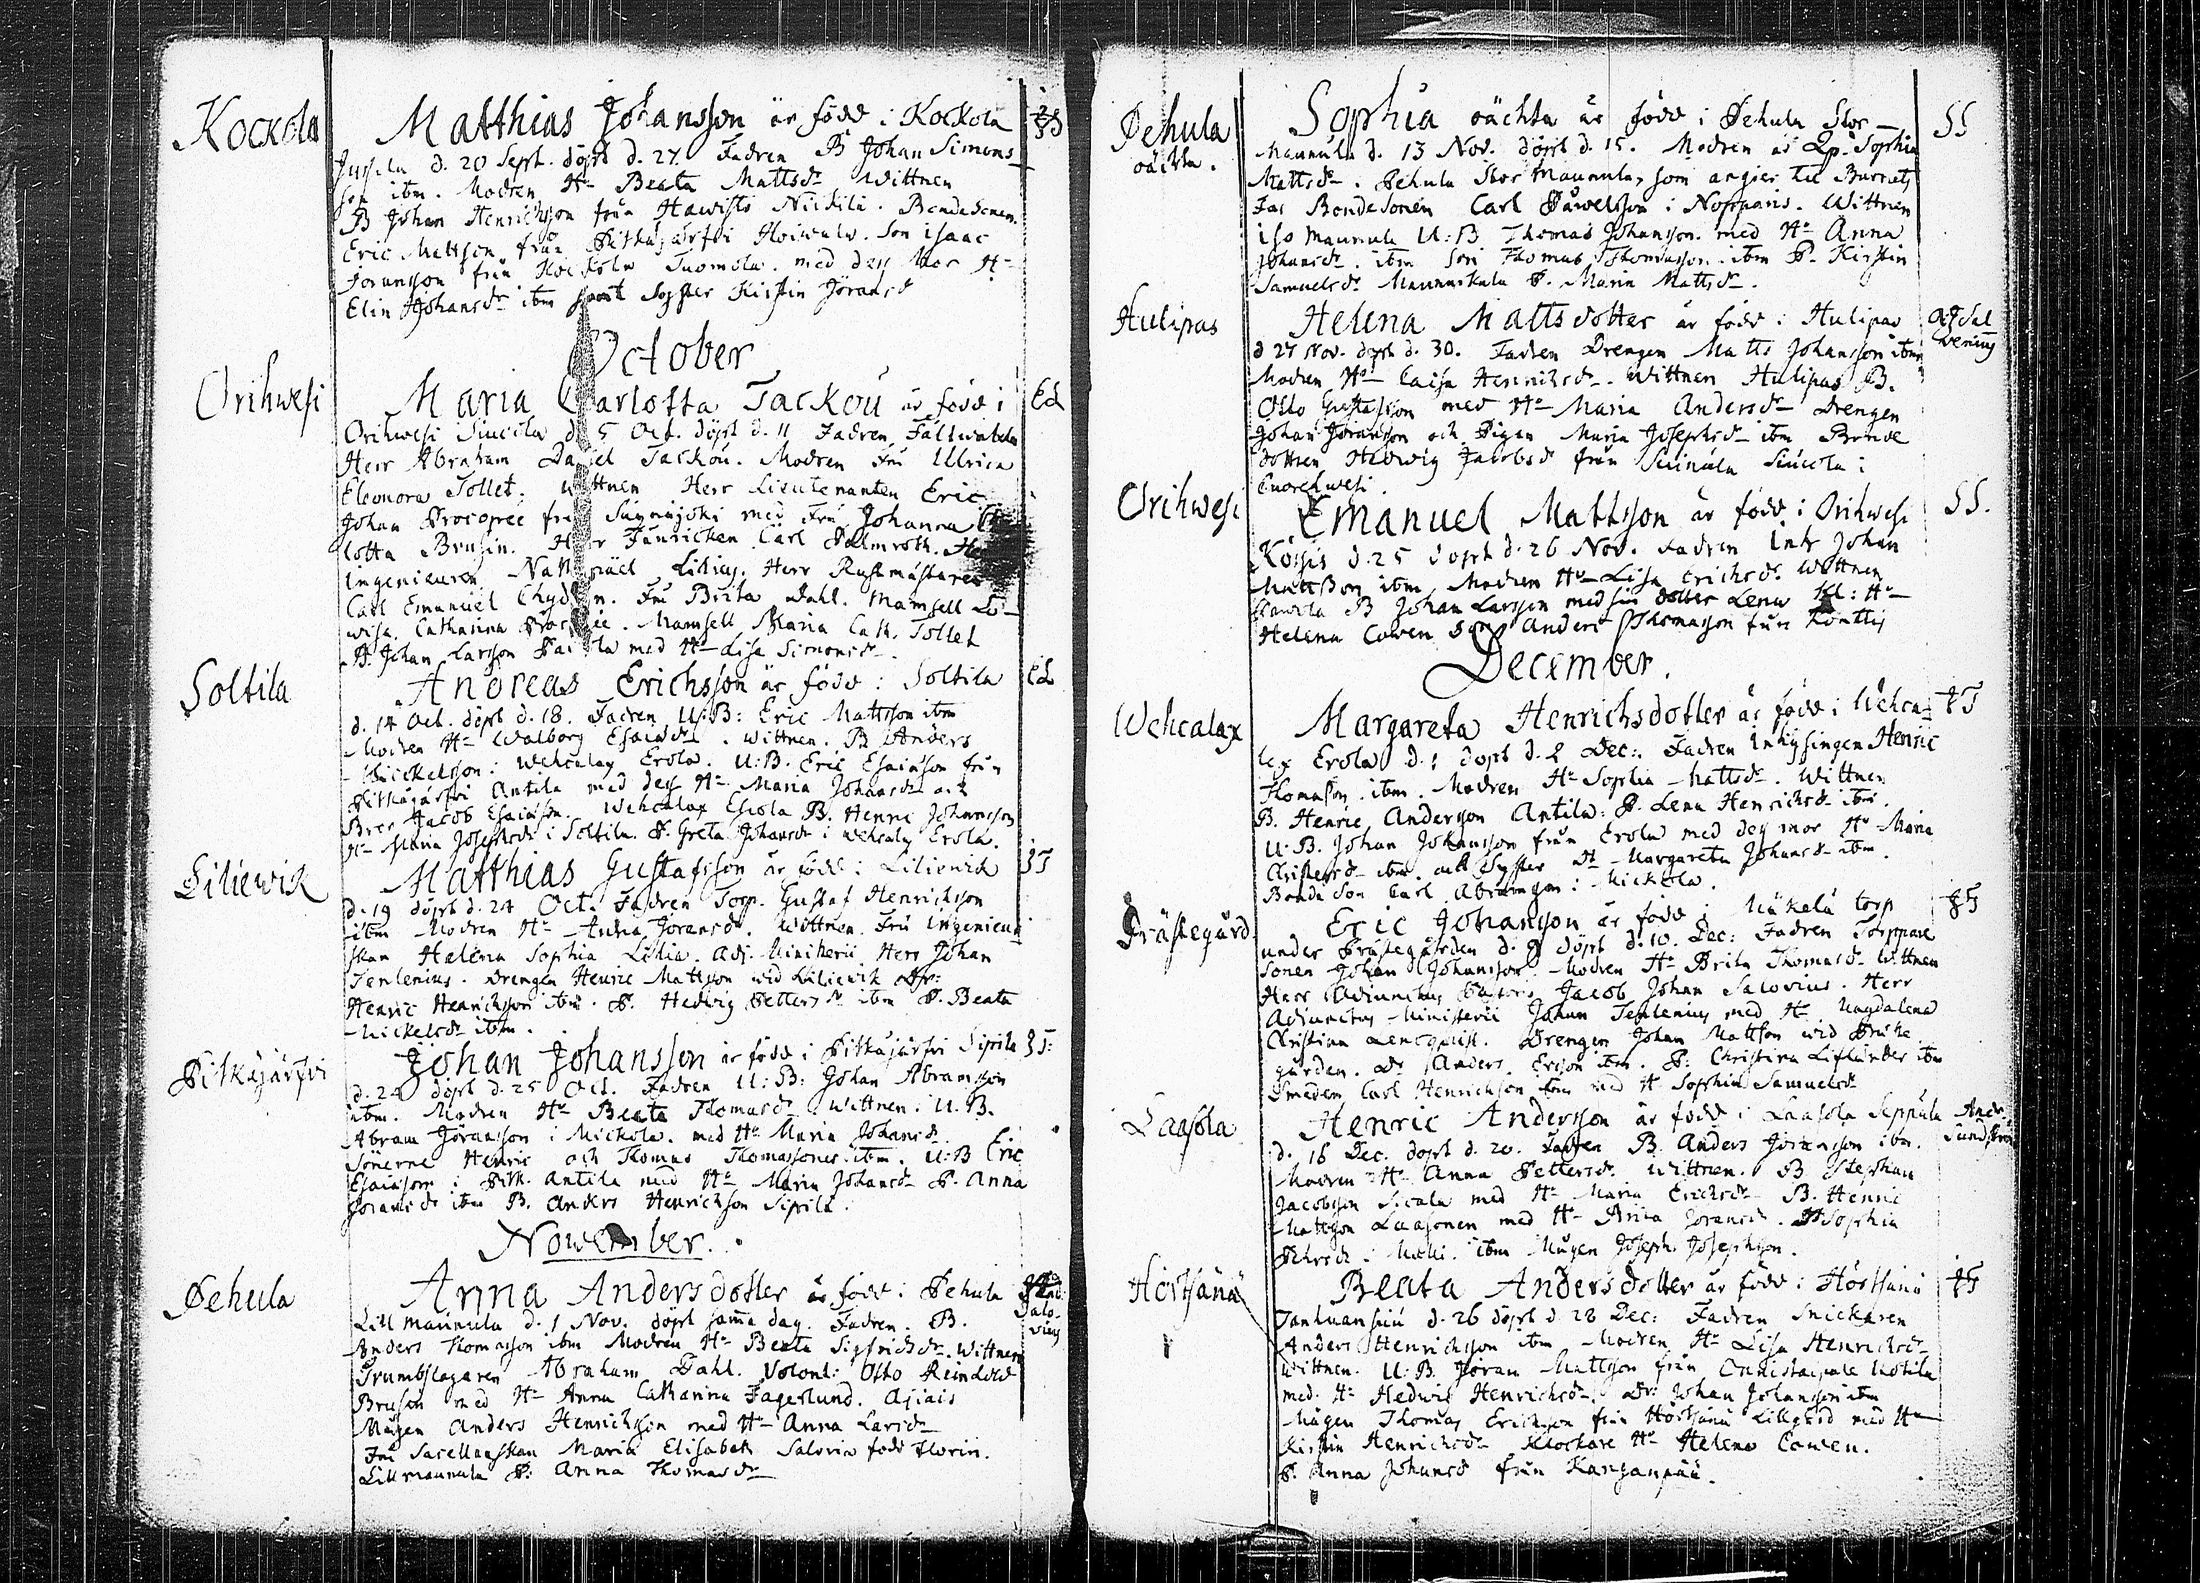 Kockola
Matthias Johansson är född i Kockola
Jussila d. 20 Sept. döpt d. 27. Fadren B Johan Simons-
son ibm. Modren Hu Beata Mattsdr Wittnen
B Johan Henrichsson från Hawisto Nickilä. Bondesonen
Eric Mattson från Pitkäjärfvi. Son Isaac
Joransson från Kockola Tuomola. med dess Mor Hu
Elin Johansdr ibm samt Syster Kirstin Jöransd
October
Orihwesi
Maria Charlotta Tackou är född i
Ed
Orihwesi Siucola d. 5 Oct. döpt d. 11 Fadren Fältwäbeln
Herr Abraham Daniel Tackou. Modren Fru Ulrica
Eleonora Tollet. Wittnen Herr Lieutenanten Eric
Johan Procopee från med Fru Johanna
lotta Brusin. Herr Fänricken Carl Palmroth.
Ingenieuren Lilius. Herr Rustmästaren
Carl Emanuel. Fru Birta Dahl. Mamsell Lo-
wisa. Catharina. Mamsell Maria Cath. Tollet
B. Johan Larsson med Hu Lisa Simonsdr.
Soltila
Andreas Erichsson är född i Soltila
Ed
d. 14 Oct. döpt d. 18. Fadren U:B: Eric Mattsson ibm
Modren Hu Walborg Esaiædr. Wittnen. B Anders
Mickelsson i Wehcalax Erola. U:B. Eric Esaiæson från
Pitkäjärfvi Antila med dess Hu Maria Johansdr och
Bror Jacob Esaiæson. Wehcalax Erola B. Henric Johansson
Hu Maria Josephsdr i Soltila. P. Greta Johansdr i Wehcalax Erola.
Liliewik
Matthias Gustafsson är född i Liliewik
d. 19 döpt d. 24 Oct. Fadren Torp. Gustaf Henrichsson
ibm Modren Hu Anna Joransdr. Wittnen. Fru Ingenieur
skan Helena Sophia Lilia. Adj. Ministerii Herr Johan
Tenlenius. Drengen Henric Mattsson wid Liliewik
Henric Henrichsson ibm. P. Hedwig Pettersdr ibm P. Beata
Mickelsdr ibm.
Pitkäjärfvi
Johan Johansson är född i Pitkäjärfvi Siprilä
d. 24 döpt d. 25 Oct. Fadren U:B: Johan Abramsson
ibm. Modren Hu Beata Thomasdr Wittnen. U.B.
Abram Jöransson i Mickola. med Hu Maria Johansdr
Sönerne Henric och Thomas Thomassöner ibm. U:B Eric
Esaiæson i Pitk. Antila med Hu Maria Johansdr P. Anna
Joransdr ibm B. Anders Henrichson Siprilä.
November.
Pehula
Anna Andersdotter är född i Pehula
Salo-
vius
Lill Maunula d. 1 Nov. döpt samma dag. Fadren. B.
Anders Thomasson ibm Modren Hu Beata Sigfridsdr. Wittnen
Trumbslagaren Abraham Dahl. Volont: Otto Reinhold
Bruson med Hu Anna Catharina Fagerlund.
Mågen Anders Henrichsson med Hu Anna Larsdr
Fru Sacellanskan Maria Elisabeth Salovia född Florin.
Lill maunula P: Anna Thomasdr
Pehula
oächta.
Sophia oächta är född i Pehula Stor-
SS
Maunula d. 13 Nov. döpt d. 15. Modren är Qp. Sophia
Mattsdr. Pehula Stor Maunula, som angier til Barnets
Far Bondesonen Carl Påwelsson i Noppais. Wittnen
Maunula U:B Thomas Johansson. med Hu Anna
Johansdr. ibm Son Thomas Thomasson. ibm P. Kirstin
Samuelsdr Maunukala P. Maria Mattsdr.
Hulipas
Helena Mattsdotter är född i Hulipas
Af Sal
venius
d 27 Nov. döpt d. 30. Fadren Drengen Matts Johansson ibm
Modren Hu Caisa Henrichsdr. Wittnen Hulipas B.
Otto Gustafsson med Hu Maria Andersdr Drengen
Johan Joransson och Pigan Maria Josephsdr ibm Bonde
dottren Hedwig Jacobsd från Siucola i
Orihwesi
Emanuel Mattsson är född i Orihwesi
SS.
d. 25 döpt d. 26 Nov. Fadren Inh Johan
Mattsson ibm Modren Hu Lisa Erichsdr. Wittnen
B Johan Larsson med sin dotter Lena Kl: Hu
Helena Cowen Son Anders Thomasson från Konttis
December.
Wehcalax
Margareta Henrichsdotter är född i Wehca-
lax Erola d. 1 döpt d. 2 Dec:. Fadren Inhysingen Henric
Thomasson ibm. Modren Hu Sophia Mattsdr. Wittnen
B. Henric Andersson Antila. P. Lena Henrichsdr ibm.
U:B. Johan Johansson från Erola med dess mor Hu Maria
Christersd ibm. och Syster Margareta Johansdr ibm.
Bonde Son Carl Abramsson i Mickola.
Prästegård
Eric Johansson är född i Mäkelä torp
under Prästegården d. 9 döpt d. 10. Dec: Fadren Torppare
Sonen Johan Johansson. Modren Hu Brita Thomasdr. Wittnen
Herr Adjunctus Pastoris Jacob Johan Salovius. Herr
Adjunctus Ministerii Johan Tenlenius med Hu Magdalena
Christina Lencqwist. Drengen Johan Mattsson wid Präste
gården. Dr Anders Ericson ibm. P: Christina Liflander ibm
Smeden Carl Henrichson ibm med Hu Sophia Samuelsdr
Laasola
Henric Andersson är född i Laasola Seppälä
Andr.
Sundström
d. 16 Dec. döpt d. 20. Fadren B. Anders Joransson ibm.
Modren Hu Anna Pettersdr. Wittnen. B Stephan
Jacobsson Sicala med Hu Maria Erichsdr B. Henric
Mattsson Laasonen med Hu Anna Joransdr. P Sophia
ibm Mågen Joseph Josephsson.
Hörtsänä
Beata Andersdotter är född i Hörtsänä
d. 26 döpt d 28 Dec: Fadren Snickaren
Anders Henrichsson ibm Modren Hu Lisa Henrichsdr
Wittnen. U:B Joran Mattsson från
med Hu Hedwig Henrichsdr. Dr: Johan Johansson ibm
Mågen Thomas Ericsson från Hörtsänä Lillgård med Hu
Kirstin Henrichsdr Klockare Hu Helena Cowen.
P. Anna Johansd från Kanganpää.